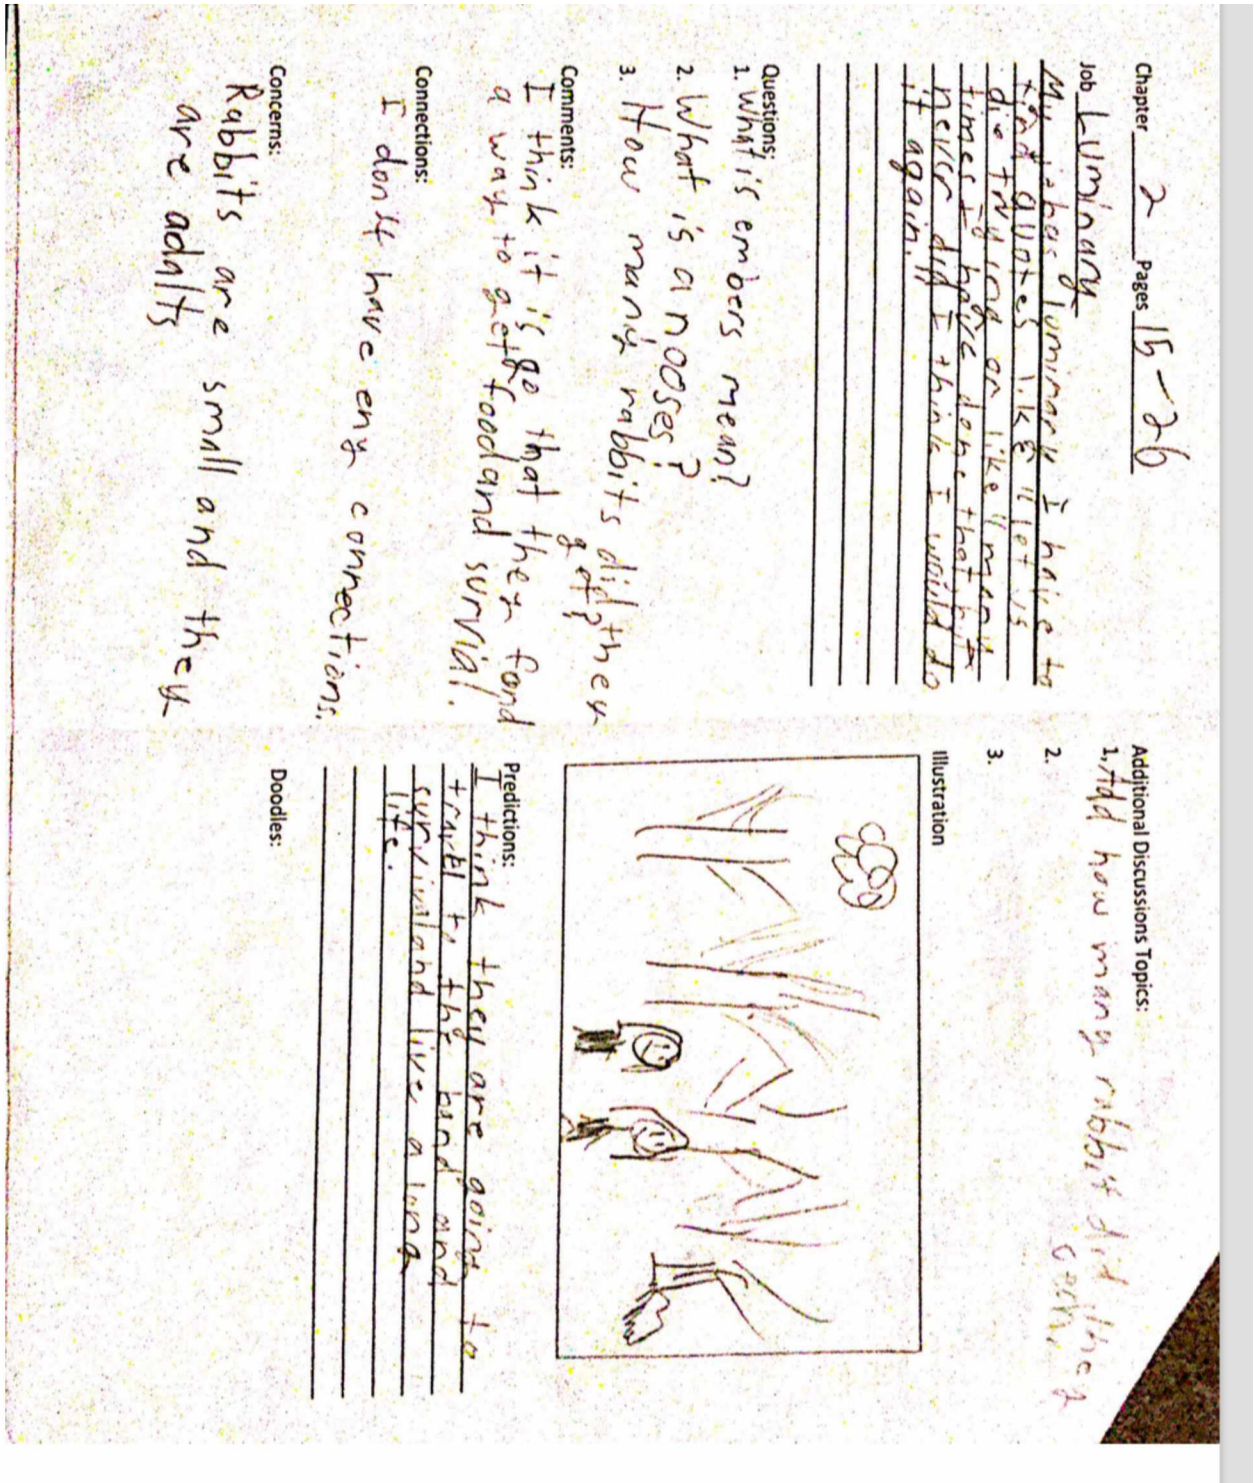 Chapter 2 Pages 15-26
Job Luminary
My job as luminary I have to
find quotes like "let us
die trying and on like "many
times I have done that but
never did I think I would do
it again."
Questions:
1. What is embers mean?
2. What is a nooses?
3. How many rabbits did they
get?
Comments:
I think it is go that they fond
a way to get food and survial.
Connections:
I don't have eny connections.
Concerns:
Rabbits are small and they
are adalts
Additional Discussions Topics:
1. Add how many rabbit did they
2.
3.
Illustration
Predictions:
I think they are going to
travel to the and
survival and live a long
life.
Doodles: